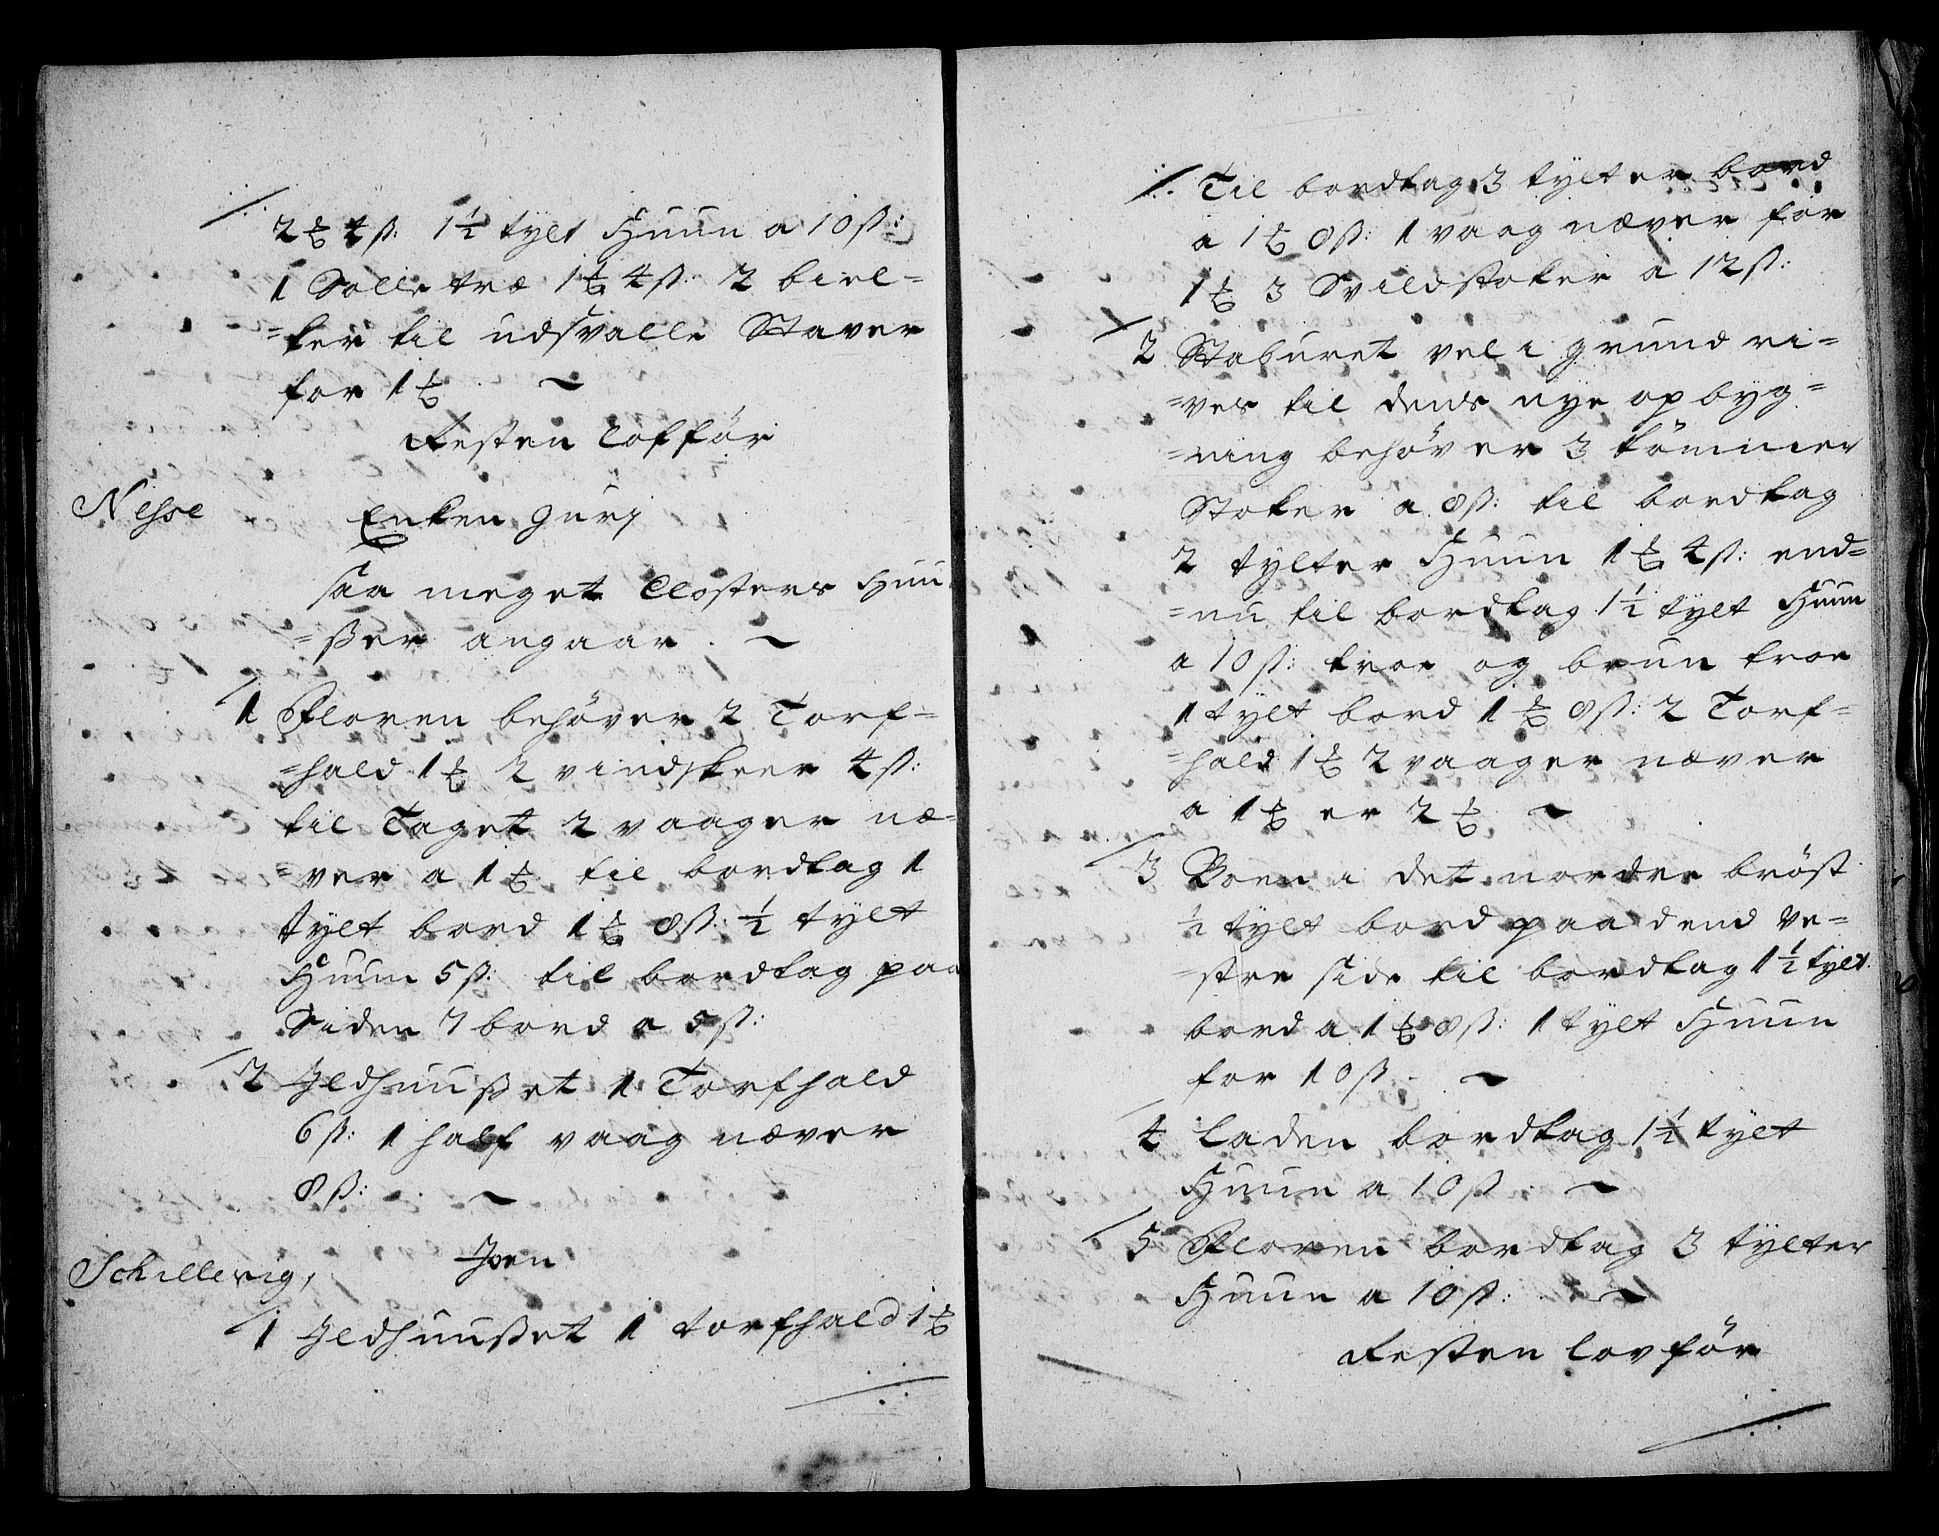 2 ℔ 4 ß: 1½ tylt Huun a 10 ß:
1 Solle træ 1 ℔ 4 ß: 2 biel=
=ker til udsvalle Staver
for 1 ℔ . ~
Resten Lofför
Nesse
Enken Gurj
saa meget Closters Huu
=sser angaar . ~
1 Floren behöver 2 Torf=
=hald 1 ℔ 2 vindskeer 4 ß:
til Taget 2 vaager næ=
=ver a 1 ℔ til bordtag 1
tylt bord 1 ℔ 8 ß: ½ tylt
Huun 5 ß: til bordtag paa
Siden 7 bord a 5 ß:
2 Jldhuusset 1 Torfhald
6 ß: 1 half vaag næver
8 ß: . ~
Joen
Schillevig,
1 Jldhuusset 1 torfhald 1 ℔
Til bordtag 3 tylter bord
a 1 ℔ 8 ß: 1 vaag næver for
1 ℔ 3 Svildstoker a 12 ß:
2 Staburet vel i grund ri=
=ves til dens nye opbyg=
=ning behöver 3 tömmer
Stoker a 8 ß: til bordtag
2 tylter Huun 1 ℔ 4 ß: end=
=nu til bordtag 1½ tylt Huun
a 10 ß: troe og brun troe
1 tylt bord 1 ℔ 8 ß: 2 Torf=
=hald 1 ℔ 2 vaager næver
a 1 ℔ er 2 ℔ . ~
3 Boen i det nordre bröst
½ tylt bord paa dend ve=
=stre side til bordtag 1½ tylt
bord a 1 ℔ 8 ß: 1 tylt Huun
for 10 ß . ~
4 Laden bordtag 1½ tylt
Huun a 10 ß . ~
5 Floren bordtag 3 tylter
Huun a 10 ß: . ~
Resten lovför